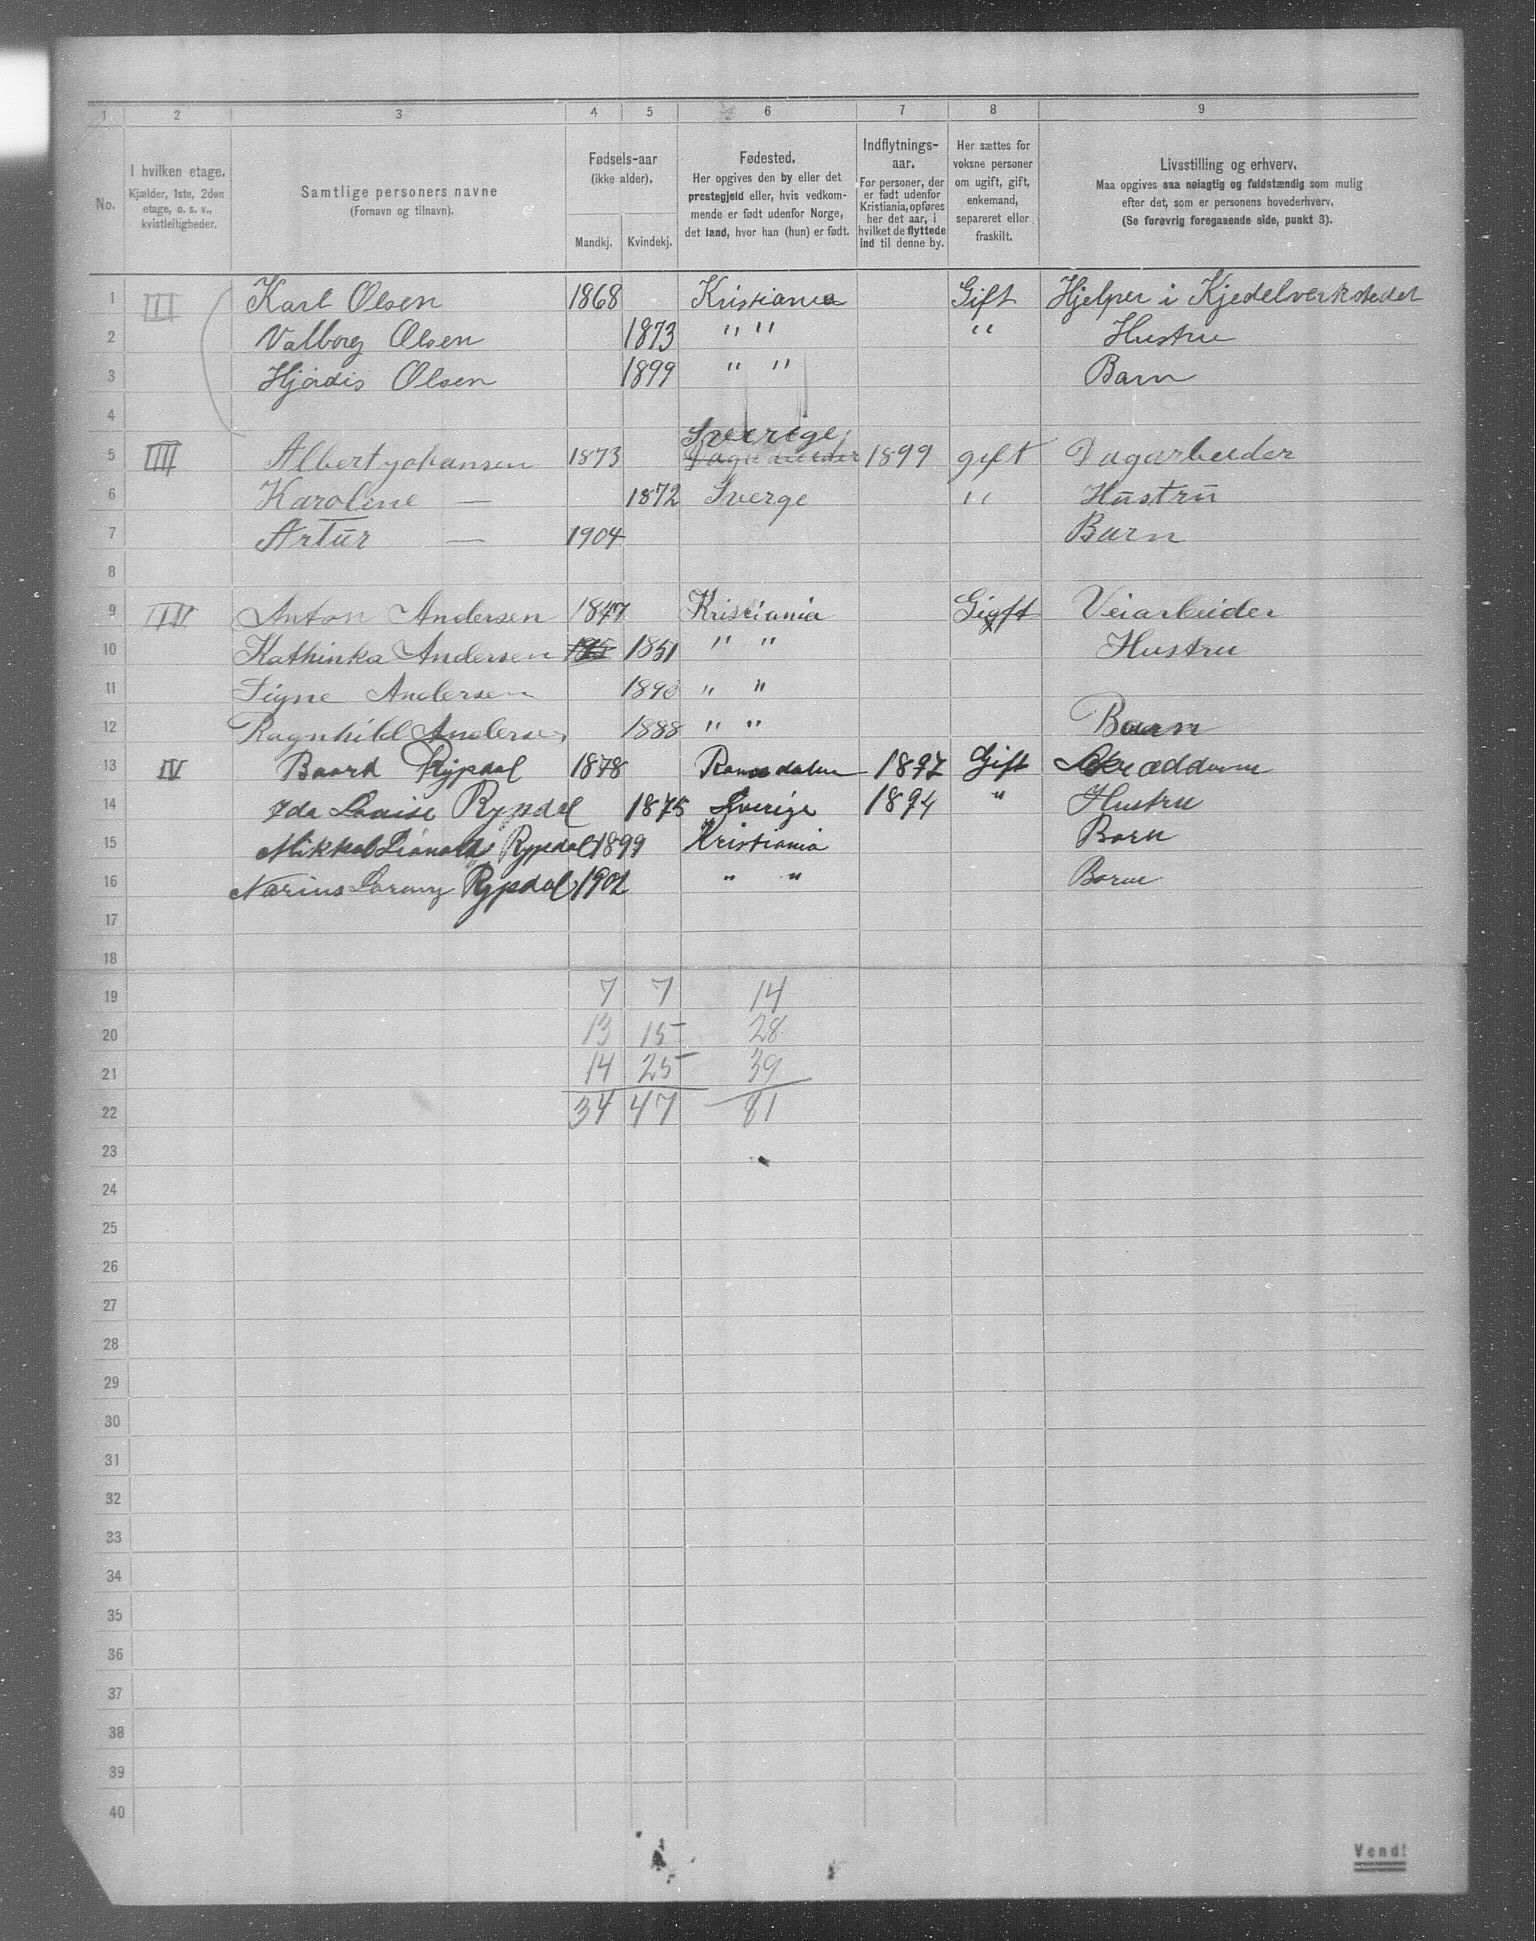 1 2 3 4 5 6 7 8 9
No. I hvilken etage. Kjælder, 1ste, 2den etage, o. s. v., kvistleiligheder. Samtlige personers navne (Fornavn og tilnavn). Fødsels-aar (ikke alder). Mandkj. Kvindekj. Fødested. Her opgives den by eller det prestegjeld eller, hvis vedkommende er født udenfor Norge, det land, hvor han (hun) er født. Indflytnings-aar. For personer, der er født udenfor Kristiania, opføres her det aar, i hvilket de flyttede ind til denne by. Her sættes for voksne personer om ugift, gift, enkemand, separeret eller fraskilt. Livsstilling og erhverv. Maa opgives saa nøiagtig og fuldstændig som mulig efter det, som er personens hovederhverv. (Se forøvrig foregaaende side, punkt 3).
1 III Karl Olsen 1868 Kristiania Gift Hjelper i Kjedelverkstedet
2 Valborg Olsen 1873 " " " Hustru
3 Hjørdis Olsen 1899 " " Barn
4
Sverige
5 III Albert johansen 1873 1899 gift Dagarbeider
6 Karoline — 1872 Sverge " Hustru
7 Artur — 1904 Barn
8
9 Anton Andersen 1847 Kristiania Gift Veiarbeider
10 Kathinka Andersen 1851 " " Hustru
11 Signe Andersen 1890 " "
12 Ragnhild Andersen 1888 " " Baarn
13 IV Baard Rypdal 1878 Romsdalen 1897 Gift
14 Ida Louise Rypdal 1875 Sverige 1894 " Hustru
15 Mikkal Rypdal 1899 Kristiania Barn
16 Narius Rypdal 1902 " " Barn
17
18
19 7 7 14
20 13 15 28
21 14 25 39
22 34 47 81
23
24
25
26
27
28
29
30
31
32
33
34
35
36
37
38
39
40
Vend!